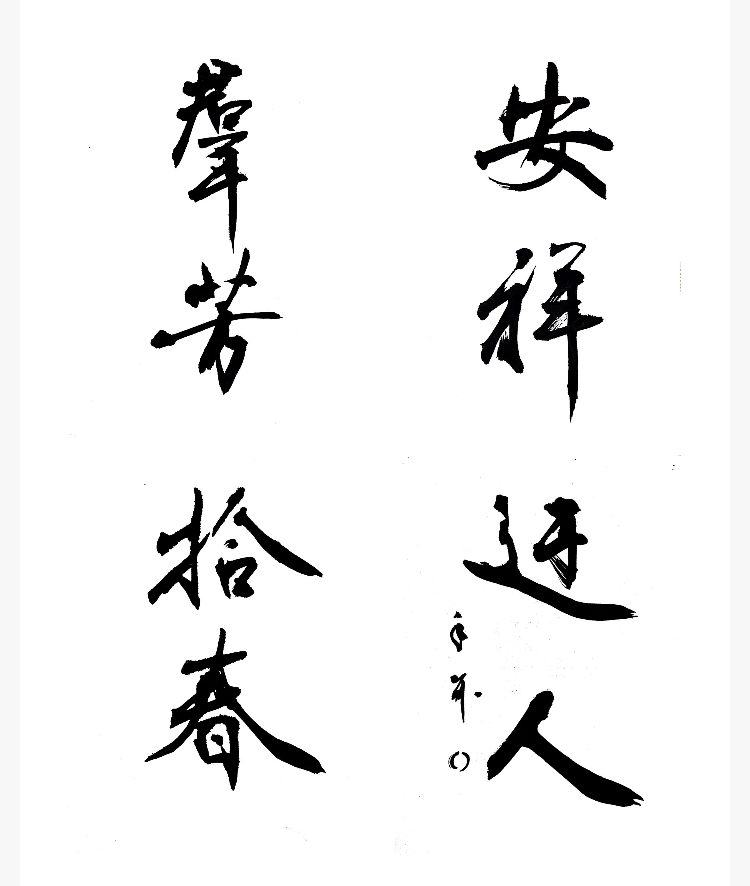 安祥迓人
羣芳拾春